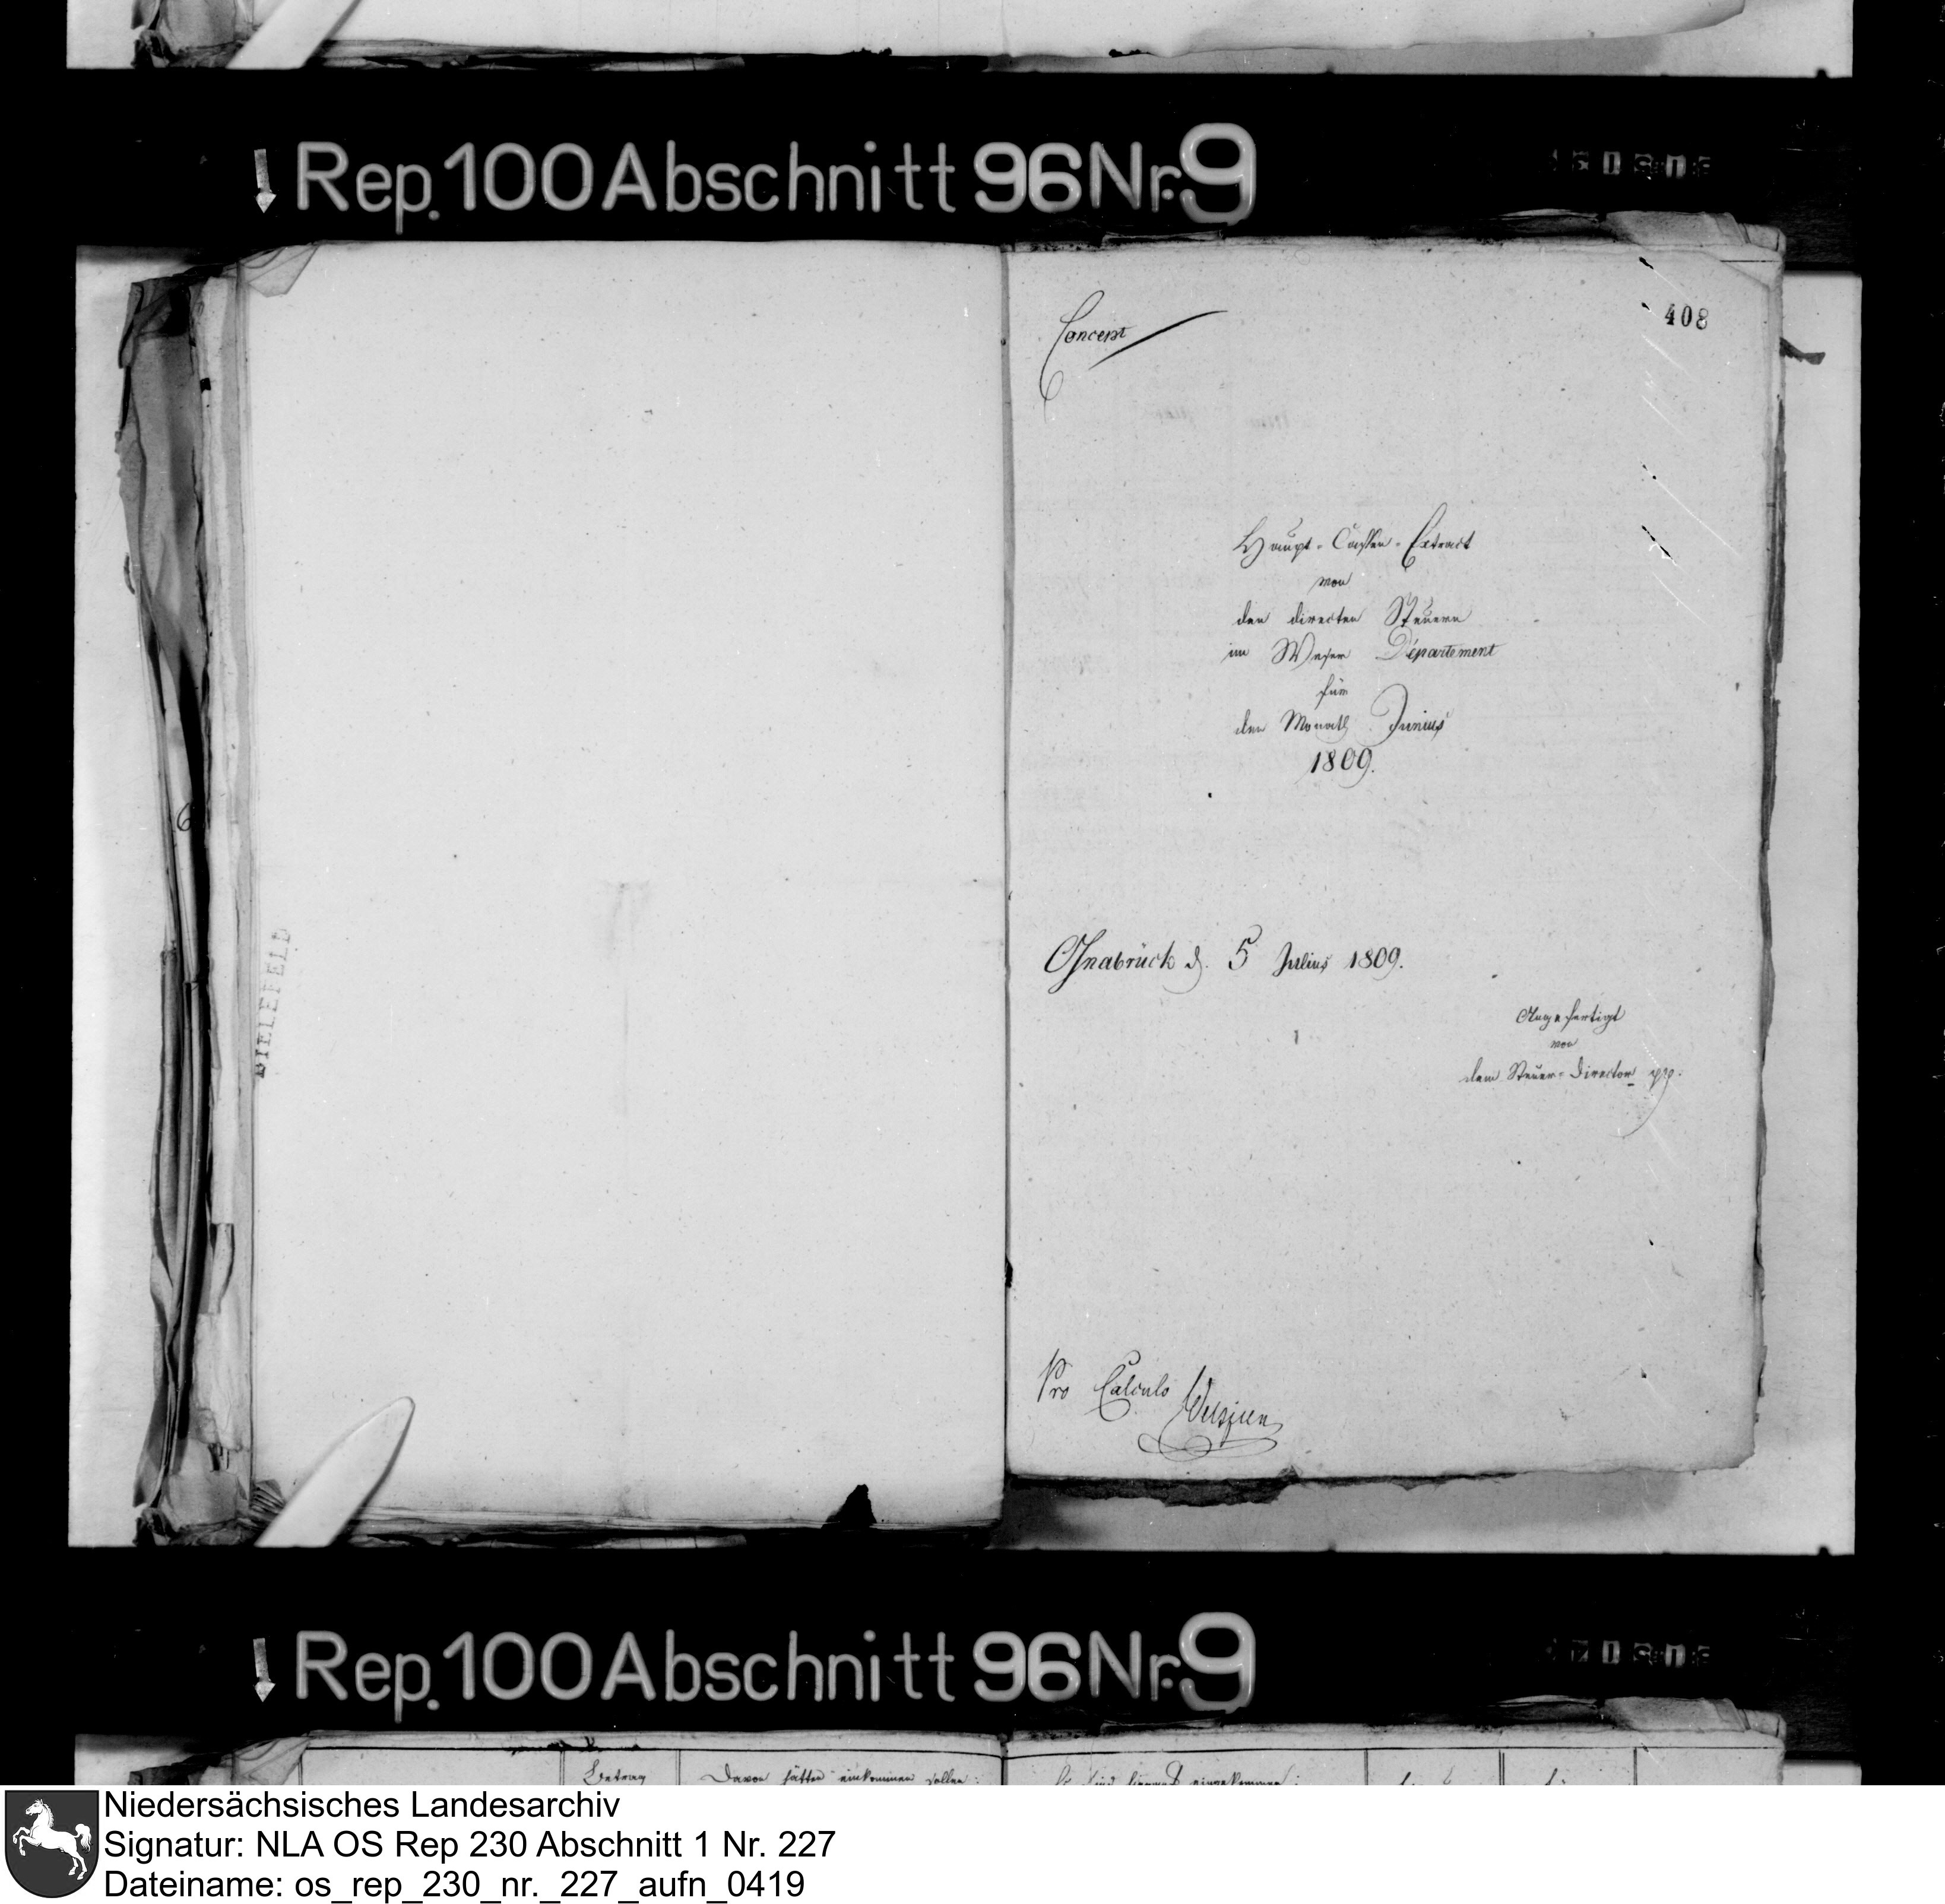 Rep. 100 Abschnitt 96 Nr. 9
408
Concept
Haupt-Cassen-Extract
von
den directen Steuern
im Weser Département
für
den Monath Junius
1809.
Osnabrück d. 5 Julius 1809.
Angefertigt
von
dem Steuer-Director pp.
BIELEFELD
6
Pro Calculo
Rep. 100 Abschnitt 96 Nr. 9
Betrag
Davon hätten einkommen sollen:
eingekommen:
Niedersächsisches Landesarchiv
Signatur: NLA OS Rep 230 Abschnitt 1 Nr. 227
Dateiname: os_rep_230_nr._227_aufn_0419